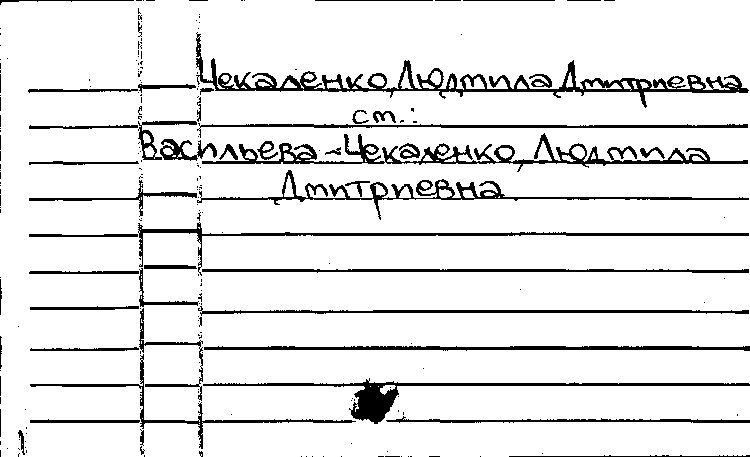 Чекаленко, Людмила Дмитриевна
ст.:
Васильева-Чекаленко, Людмила
Дмитриевна